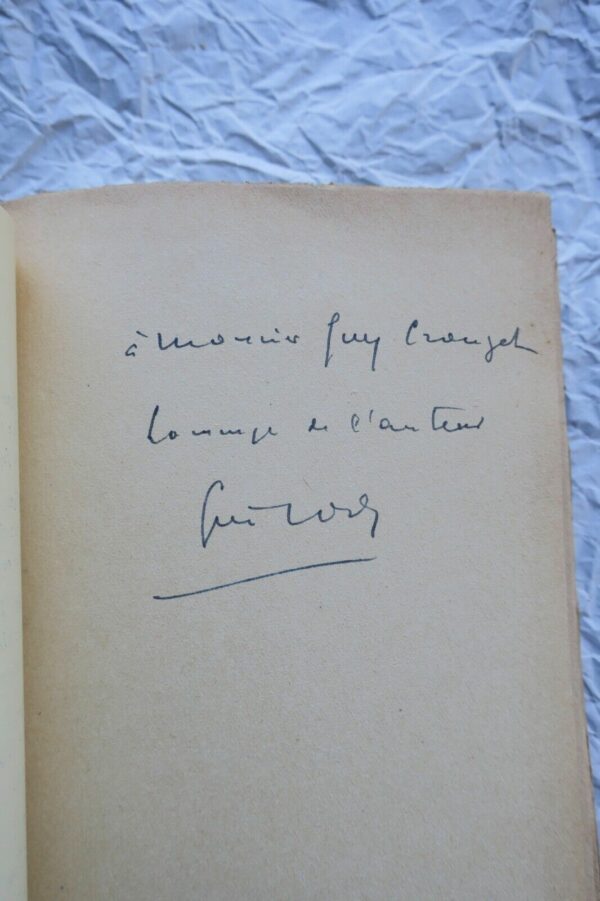 à Monsieur Guy Crouzet
hommage de l'auteur